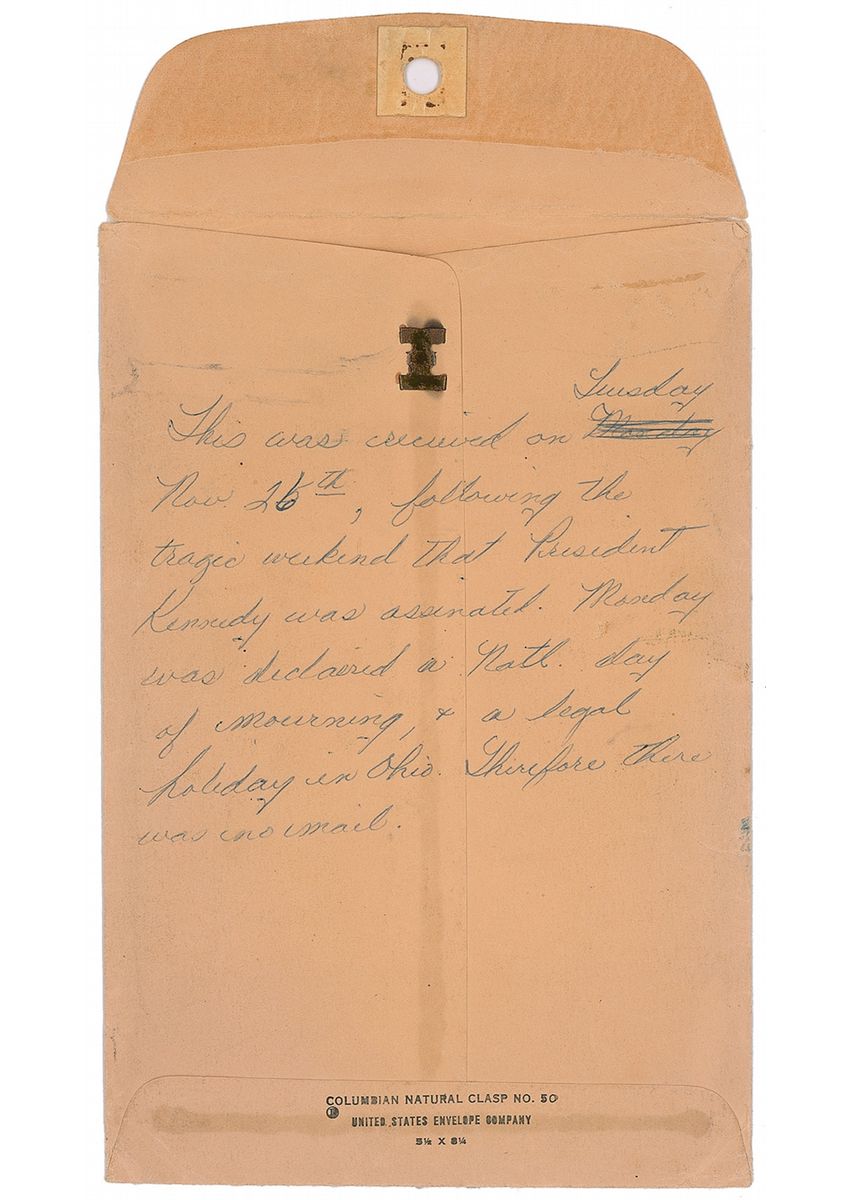 Tuesday
This was received on Monday
Nov. 26th, following the
tragic weekend that President
Kennedy was assinated. Monday
was declaired a Natl. day
of mourning, & a legal
holiday in Ohio. Therefore there
was no mail.
COLUMBIAN NATURAL CLASP NO. 50
UNITED STATES ENVELOPE COMPANY
5½ X 8¼